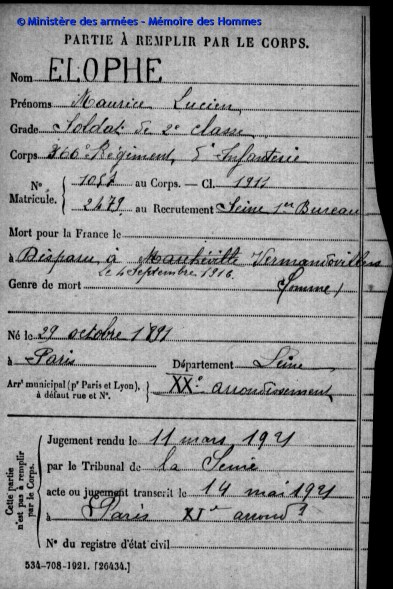 © Ministère des armées - Mémoire des Hommes
PARTIE À REMPLIR PAR LE CORPS.
Nom ELOPHE
Prénoms Maurice Lucien
Grade Soldat de 2e classe
Corps 366e Régiment d'Infanterie
N° 1087 au Corps. — Cl. 1911
Matricule. 2479 au Recrutement Seine 1er Bureau
Mort pour la France le
à Disparu à Vermandovillers
Le 4 Septembre 1916
Genre de mort (Somme)
Né le 29 octobre 1891
à Paris Département Seine
Arrt municipal (pr Paris et Lyon), à défaut rue et N°. XXe arrondissement
Cette partie n'est pas à remplir par le Corps.
Jugement rendu le 11 mars 1921
par le Tribunal de la Seine
acte ou jugement transcrit le 14 mai 1921
à Paris XIe arrondt
N° du registre d'état civil
534-708-1921. [26434.]